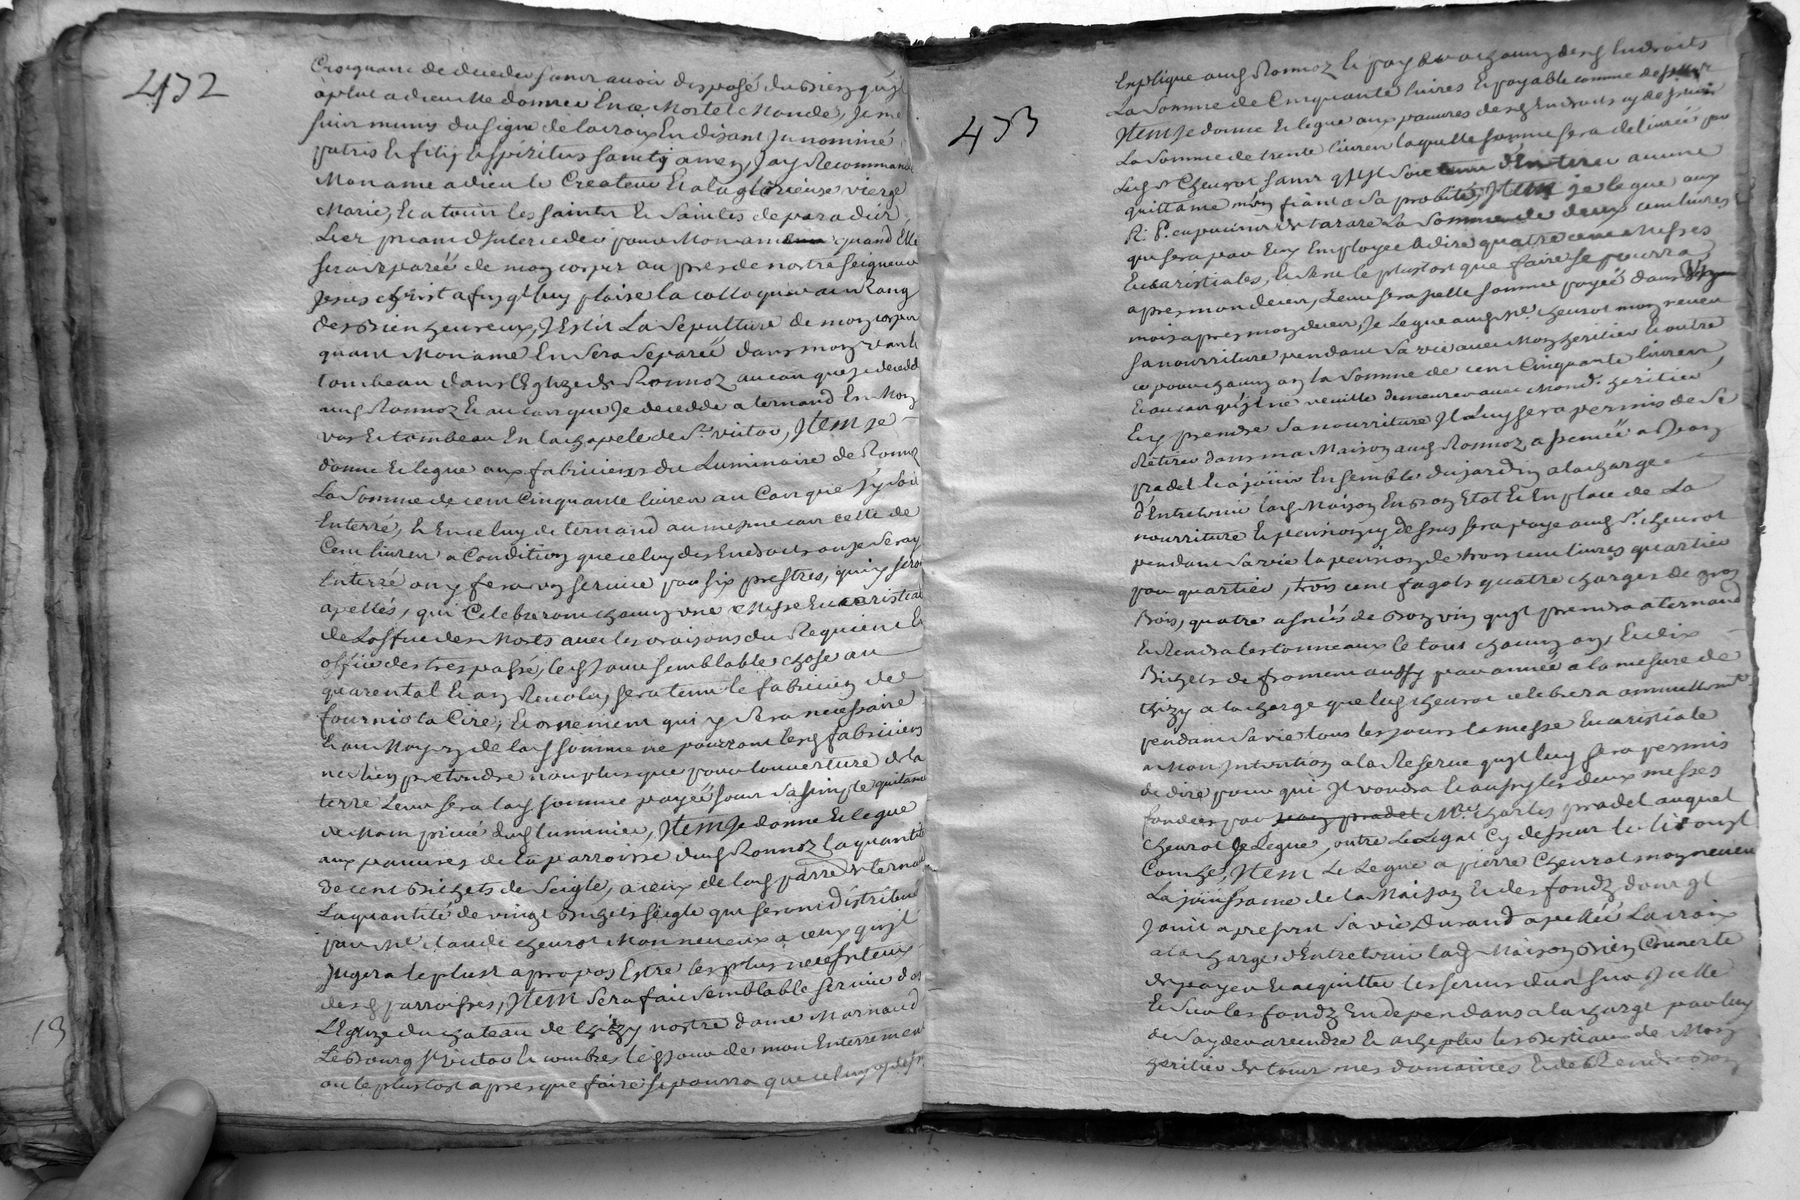 432
Craignant de deceder sans avoir disposé du bien qu'il
a plut a dieu me donner En ce Mortel Monde, Je me
suis muny du signe de la croix En disant In nominé
patris Et filij Et spiritus sancty amen, J'ay Recommandé
Mon ame a dieu le Createur Et a la glorieuse vierge
Marie, Et a tous les saints Et saintes de paradis,
Les priant d'Interceder pour Mon ame quand Elle
sera separéé de mon corps au pres de nostre seigneur
Jesus christ afin qu'il luy plaise la colloquer au Rang
des bien heureux, J'Eslis La Sepulture de mon corps
quant Mon ame En sera separéé dans mon
tombeau dans l'Eglize de Ronnoz au cas que je decedde
aud Ronnoz Et au cas que Je decedde a ternand En Mon
vas Et tombeau En la chapele de St victor, Item Je
donne Et legue aux fabriciens du Luminaire de Ronnoz
La Somme de cent Cinquante livres au Cas que j'y sois
Enterré, Et En celuy de ternand au mesme cas celle de
Cent livres a Condition que celuy des Endroits ou je seray
Enterré on y fera un service par six prestres, qui y seront
apellés, qui Celebreront chacun une Messe Eucaristiale
de L'office des Morts avec les oraisons du Requiem Et
office des trespassé, led Jour semblable chose au
quarental Et an Revolu, sera tenu le fabricien de
fournir la Cire, Et ornement qui y sera necessaire
Et au Moyen de lad somme ne pourront lesd fabriciens
ne rien pretendre non plus que pour l'ouverture de la
terre Leur sera lad somme payéé sous sa simple quitance
de Main privé dud luminier, Item Je donne Et legue
aux pauvres de la parroisse dud Ronnoz la quantité
de cent Bichets de Seigle, a ceux de lad parre de ternand
La quantité de vingt Bichets seigle qui seront distribué
par Mre claude cheurot Mon neveux a ceux qu'il
Jugera le plus a propos Estre les plus necessiteux
desd parroisses, Item sera fait semblable service dans
L'Eglize du chateau de thizy nostre dame Marnand
Le Bourg St victor Et combres le jour de mon Enterrement
ou le plustost apres que faire se pourra que celuy cy dessus
433
Explique aud Ronnoz Et payé a chacun desd Endroits
La Somme de Cinquante livres Et payable comme dessus
Item Je donne Et legue aux pauvres desd Endroits cy dessus
La Somme de trente livres laquelle somme sera delivrée par
Led Sr Cheurot sans qu'il soit tenu d'En tirer aucune
quittance m'en fiant a sa probité, Item je legue aux
R. P. capucins de tarare La Somme de deux cent livres
qui sera par Eux Employee a dire quatre cent Messes
Eucaristiales, Et le plustost que faire se pourra
apres mon deces, Leur sera lade somme payéé dans un
mois apres mon deces, Je Legue aud Mre cheurot mon neveu
sa nourriture pendant sa vie avec Mon heritier Et outre
ce pour chacun an la Somme de cent Cinquante livres
Et au cas qu'il ne veuille demeurer avec Mond. heritier
Et y prendre sa nourriture Il luy sera permis de se
Retirer dans ma Maison aud Ronnoz a Jean
pradel Et a jouir Ensemble du jardin a la charge
d'Entretenir lad Maison En son Etat Et En place de La
nourriture Et pension cy dessus sera payé aud Sr. cheurot
pendant sa vie la pension de trois cent livres quartier
par quartier, trois cent fagots quatre charges de gros
Bois, quatre asnéés de bon vin qu'il prendra a ternand
Et Rendra les tonneaux le tout chacun an, Et dix
Bichets de froment aussy par année a la mesure de
thizy a la charge que led cheurot celebrera annuellement
pendant sa vie tous les jours la messe Eucaristiale
a Mon Intention a la Reserve qu'il luy sera permis
de dire pour qui Il voudra Et aussy les deux messes
fondées par Mre charles pradel auquel
cheurot Je Legue, outre Le Legat Cy dessus le lit ou il
Couche, Item Je Legue a pierre Cheurot mon neveu
La jouissance de la Maison Et des fondz dont Il
Jouit a present sa vie Durand apelléé La croix
a la charge d'Entretenir lad Maison Bien Couverte
de payer Et acquitter les servis deus sur Icelle
Et Sur les fondz En dependans a la charge par luy
de vendre Et achepter les Bestiaux de Mon
heritier de tous mes domaines Et de Rendre Bon